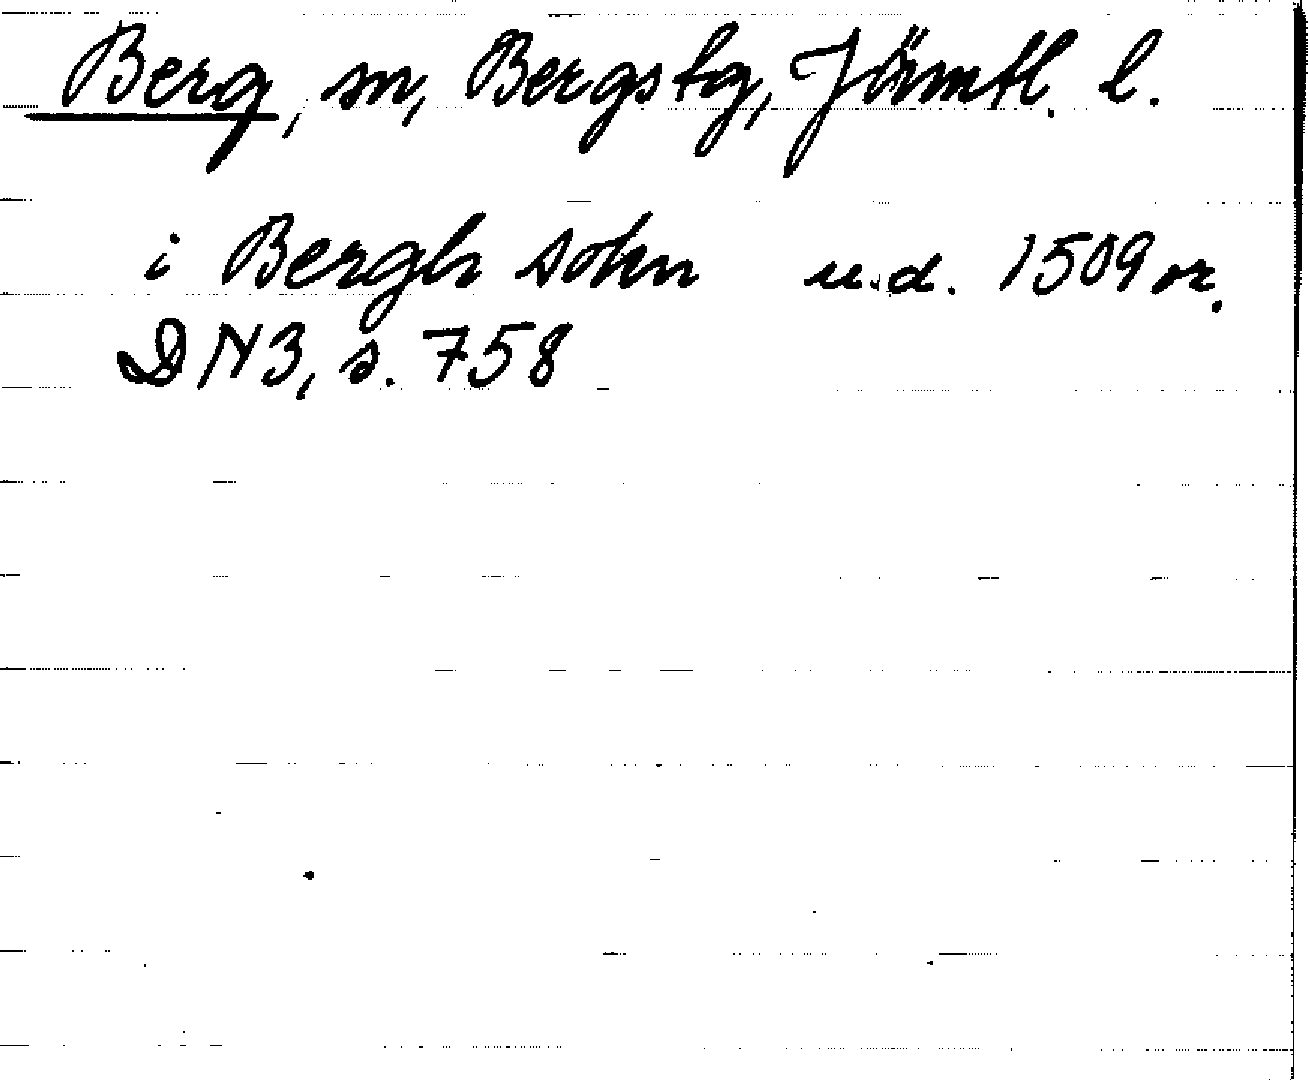 Berg, sn, Bergs tg, Jämtl. l.
i Bergh sokn u.d. 1509 or.
DN3, s. 758